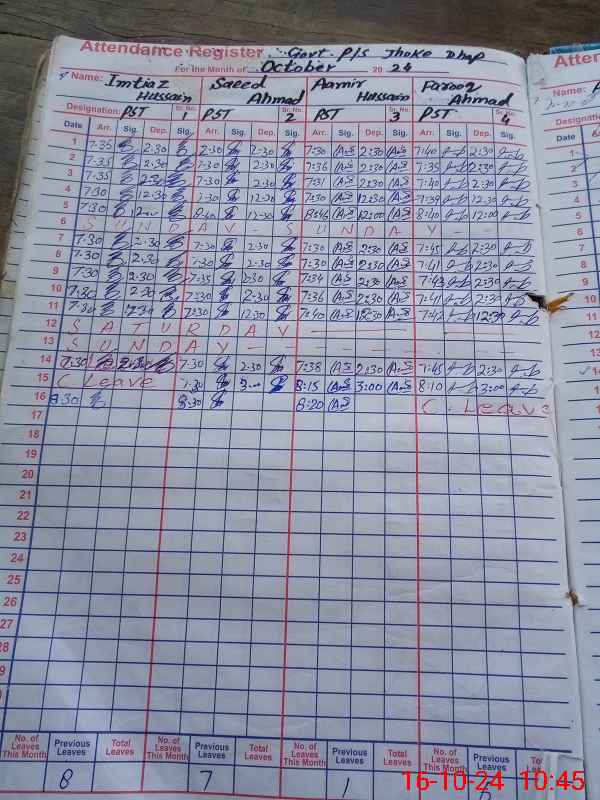 Attendance Register Govt. P/S Jhoke Dhap
For the Month of October 2024
Name: Imtiaz Hussain Saeed Ahmad Aamir Hussain Farooq Ahmad
Designation: PST Sr. No. 1 PST Sr. No. 2 PST Sr. No. 3 PST Sr. No. 4
Date Arr. Sig. Dep. Sig. Arr. Sig. Dep. Sig. Arr. Sig. Dep. Sig. Arr. Sig. Dep. Sig.
1 7-35 2-30 7-30 2-30 7:30 2:30 7:40 2:30
2 7-35 2-30 7-30 2-30 7:36 2:30 7:35 2:30
3 7-35 2-30 7-30 2-30 7:31 2:30 7:40 2:30
4 7-30 12-30 7-30 12-30 7:30 12:30 7:39 12:30
5 7-30 8:46 12:00 8:40 12:00
6 SUNDAY - SUNDAY -
7 7-30 2-30 7-30 2-30 7:30 2:30 7:45 2:30
8 7-30 2-30 7-30 2-30 7:30 2:30 7:41 2:30
9 7-30 2-30 7-35 2-30 7:34 2:30 7:43 2:30
10 7-30 2-30 7-30 2-30 7:36 2:30 7:41 2:30
11 7-30 12-30 7-30 12-30 7:40 12:30 7:42 12:30
12 SATURDAY -
13 SUNDAY -
14 7-30 7-30 2-30 7:38 2:30 7:45 2:30
15 C Leave 7-30 8:15 3:00 8:10 3:00
16 8-30 8-30 8:20 C. Leave
17
18
19
20
21
22
23
24
25
26
27
28
No. of Leaves This Month Previous Leaves Total Leaves No. of Leaves This Month Previous Leaves Total Leaves No. of Leaves This Month Previous Leaves Total Leaves No. of Leaves This Month Previous Leaves
8 7 1
16-10-24 10:45